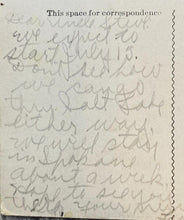 This space for correspondence
Dear Uncle Steve
We expect to
start July 13.
Don't see how
we can go
thru Salt Lake
either way.
We will stay
in Spokane
about a week
to see you